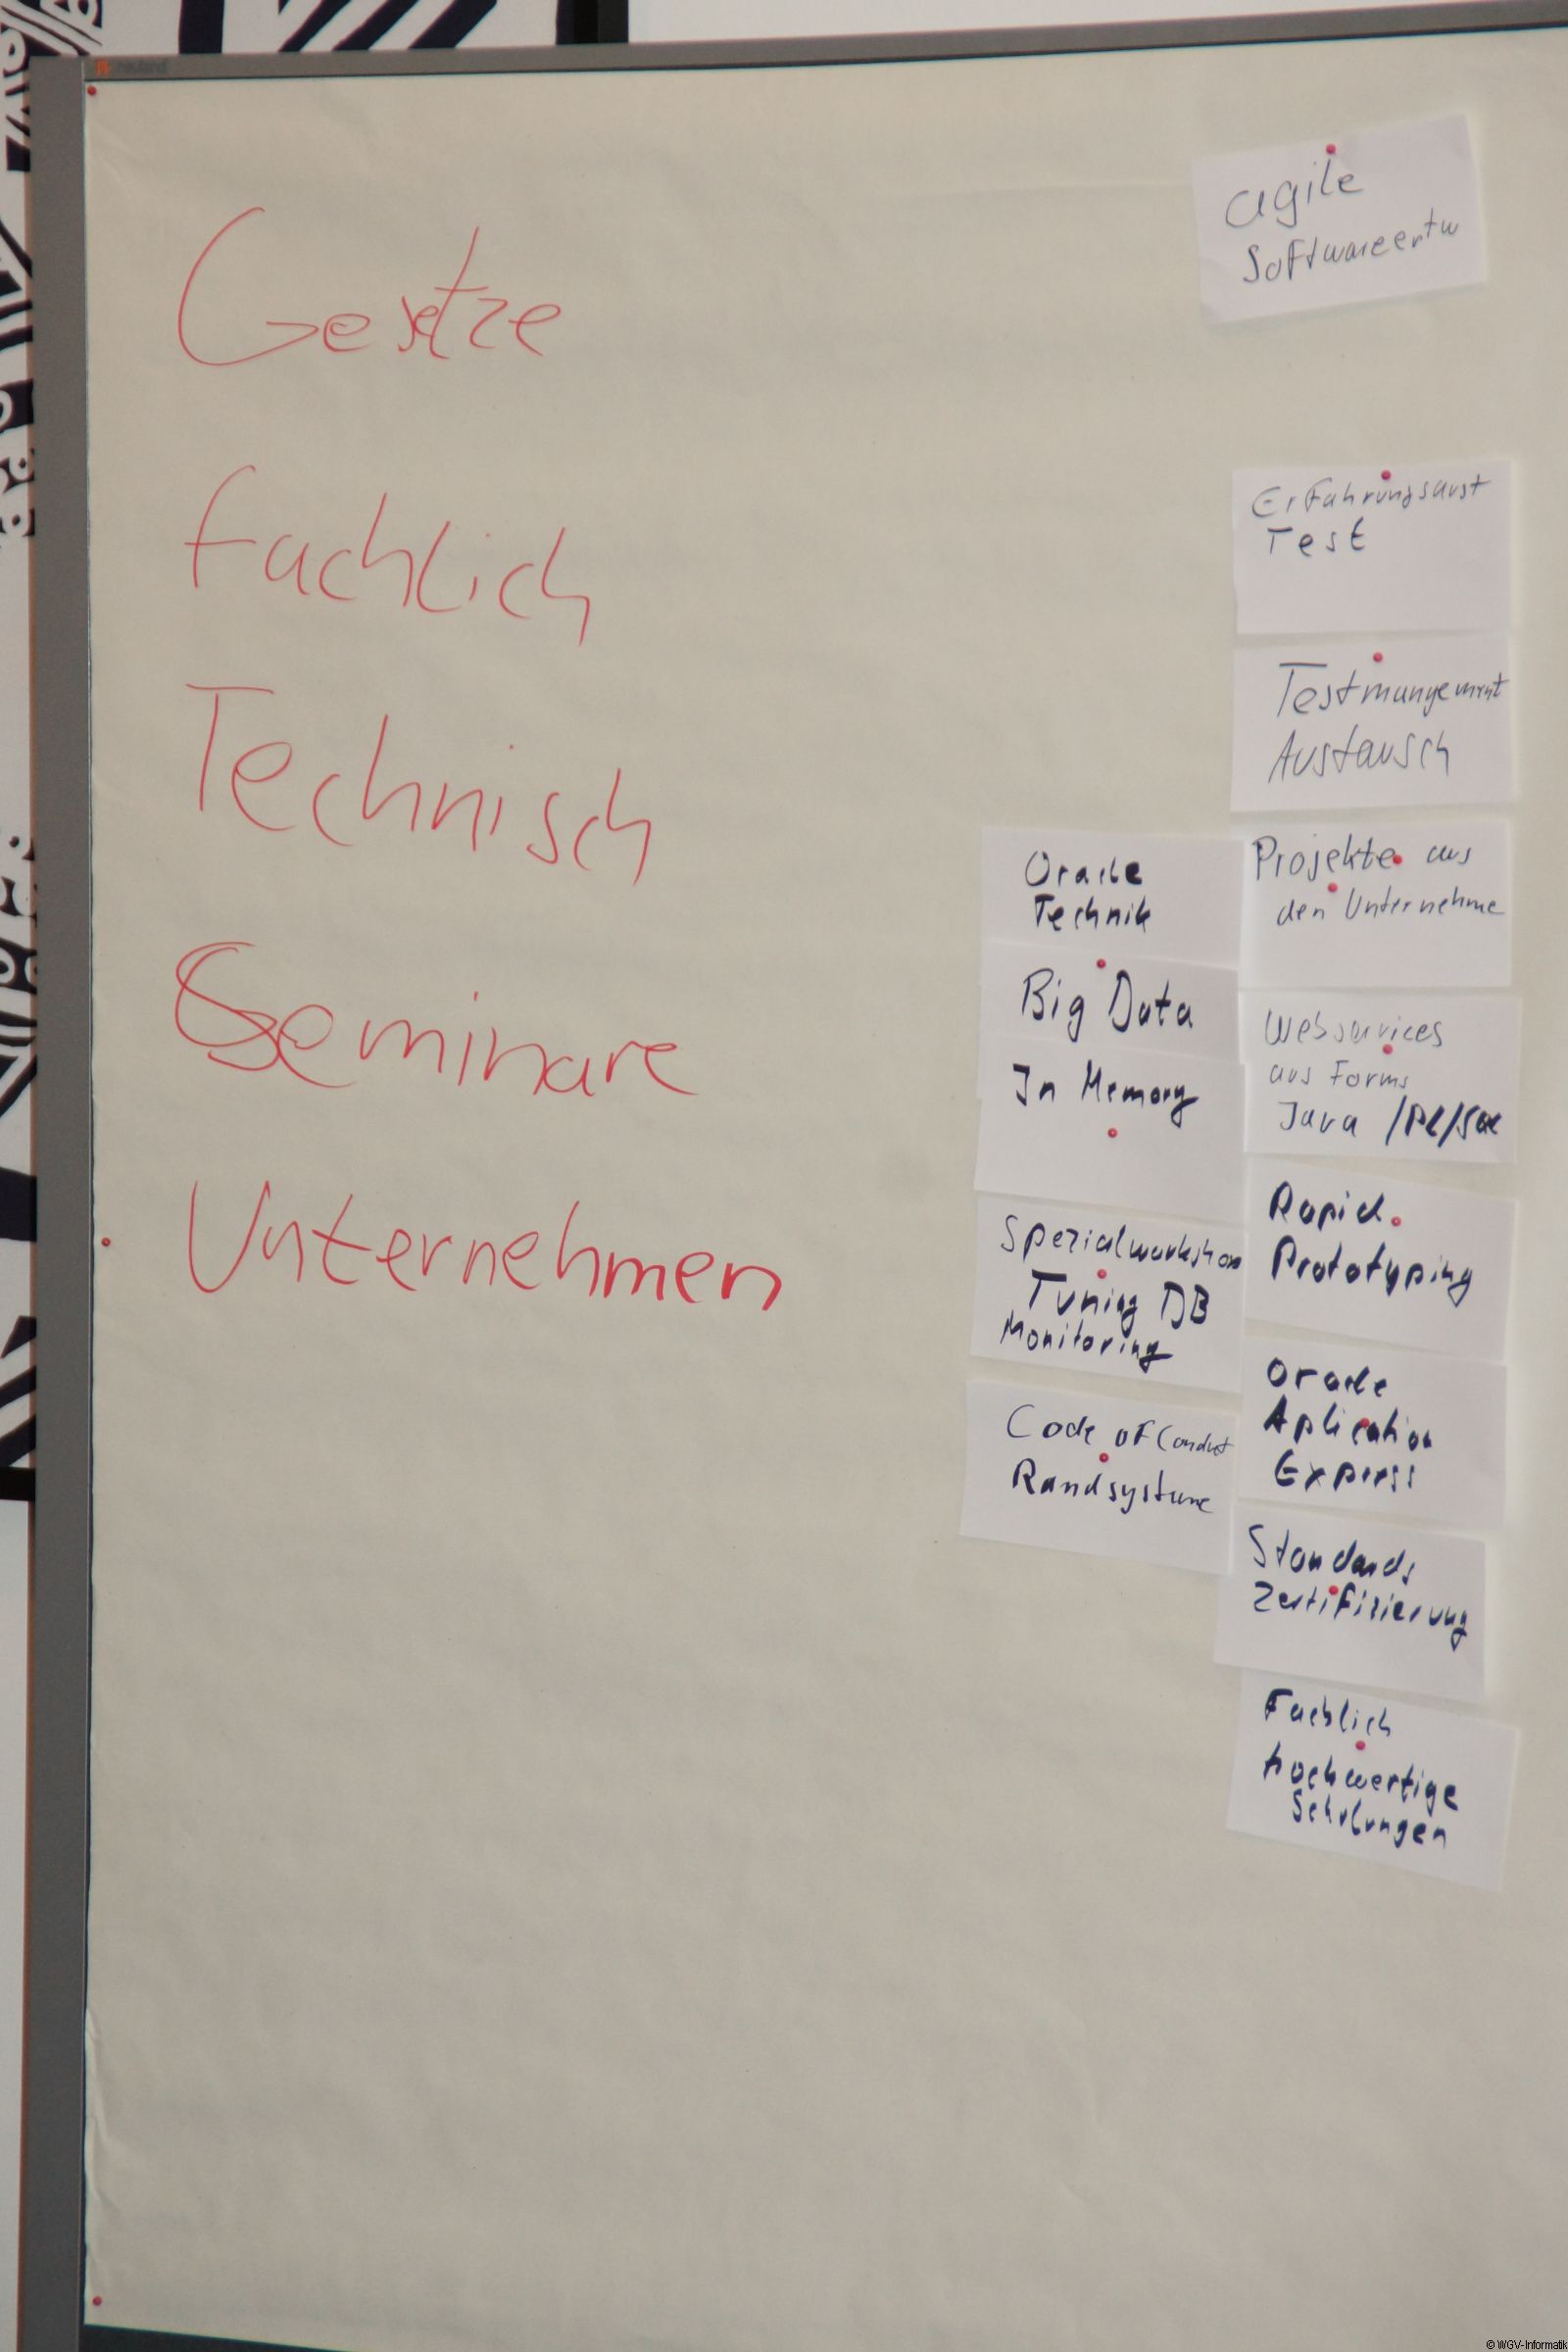 Gesetze
Fachlich
Technisch
Seminare
Unternehmen
agile
Softwareentw
Erfahrungsaust
Test
Testmangement
Austausch
Oracle
Technik
Big Data
In Memory
Spezialworkshop
Tuning DB
Monitoring
Code of Conduct
Randsysteme
Projekte aus
den Unternehme
Webservices
aus Forms
Java /PL/SQL
Rapid
Prototyping
Oracle
Aplication
Express
Standards
Zertifizierung
Fachlich
hochwertige
Schulungen
© WGV-Informatik